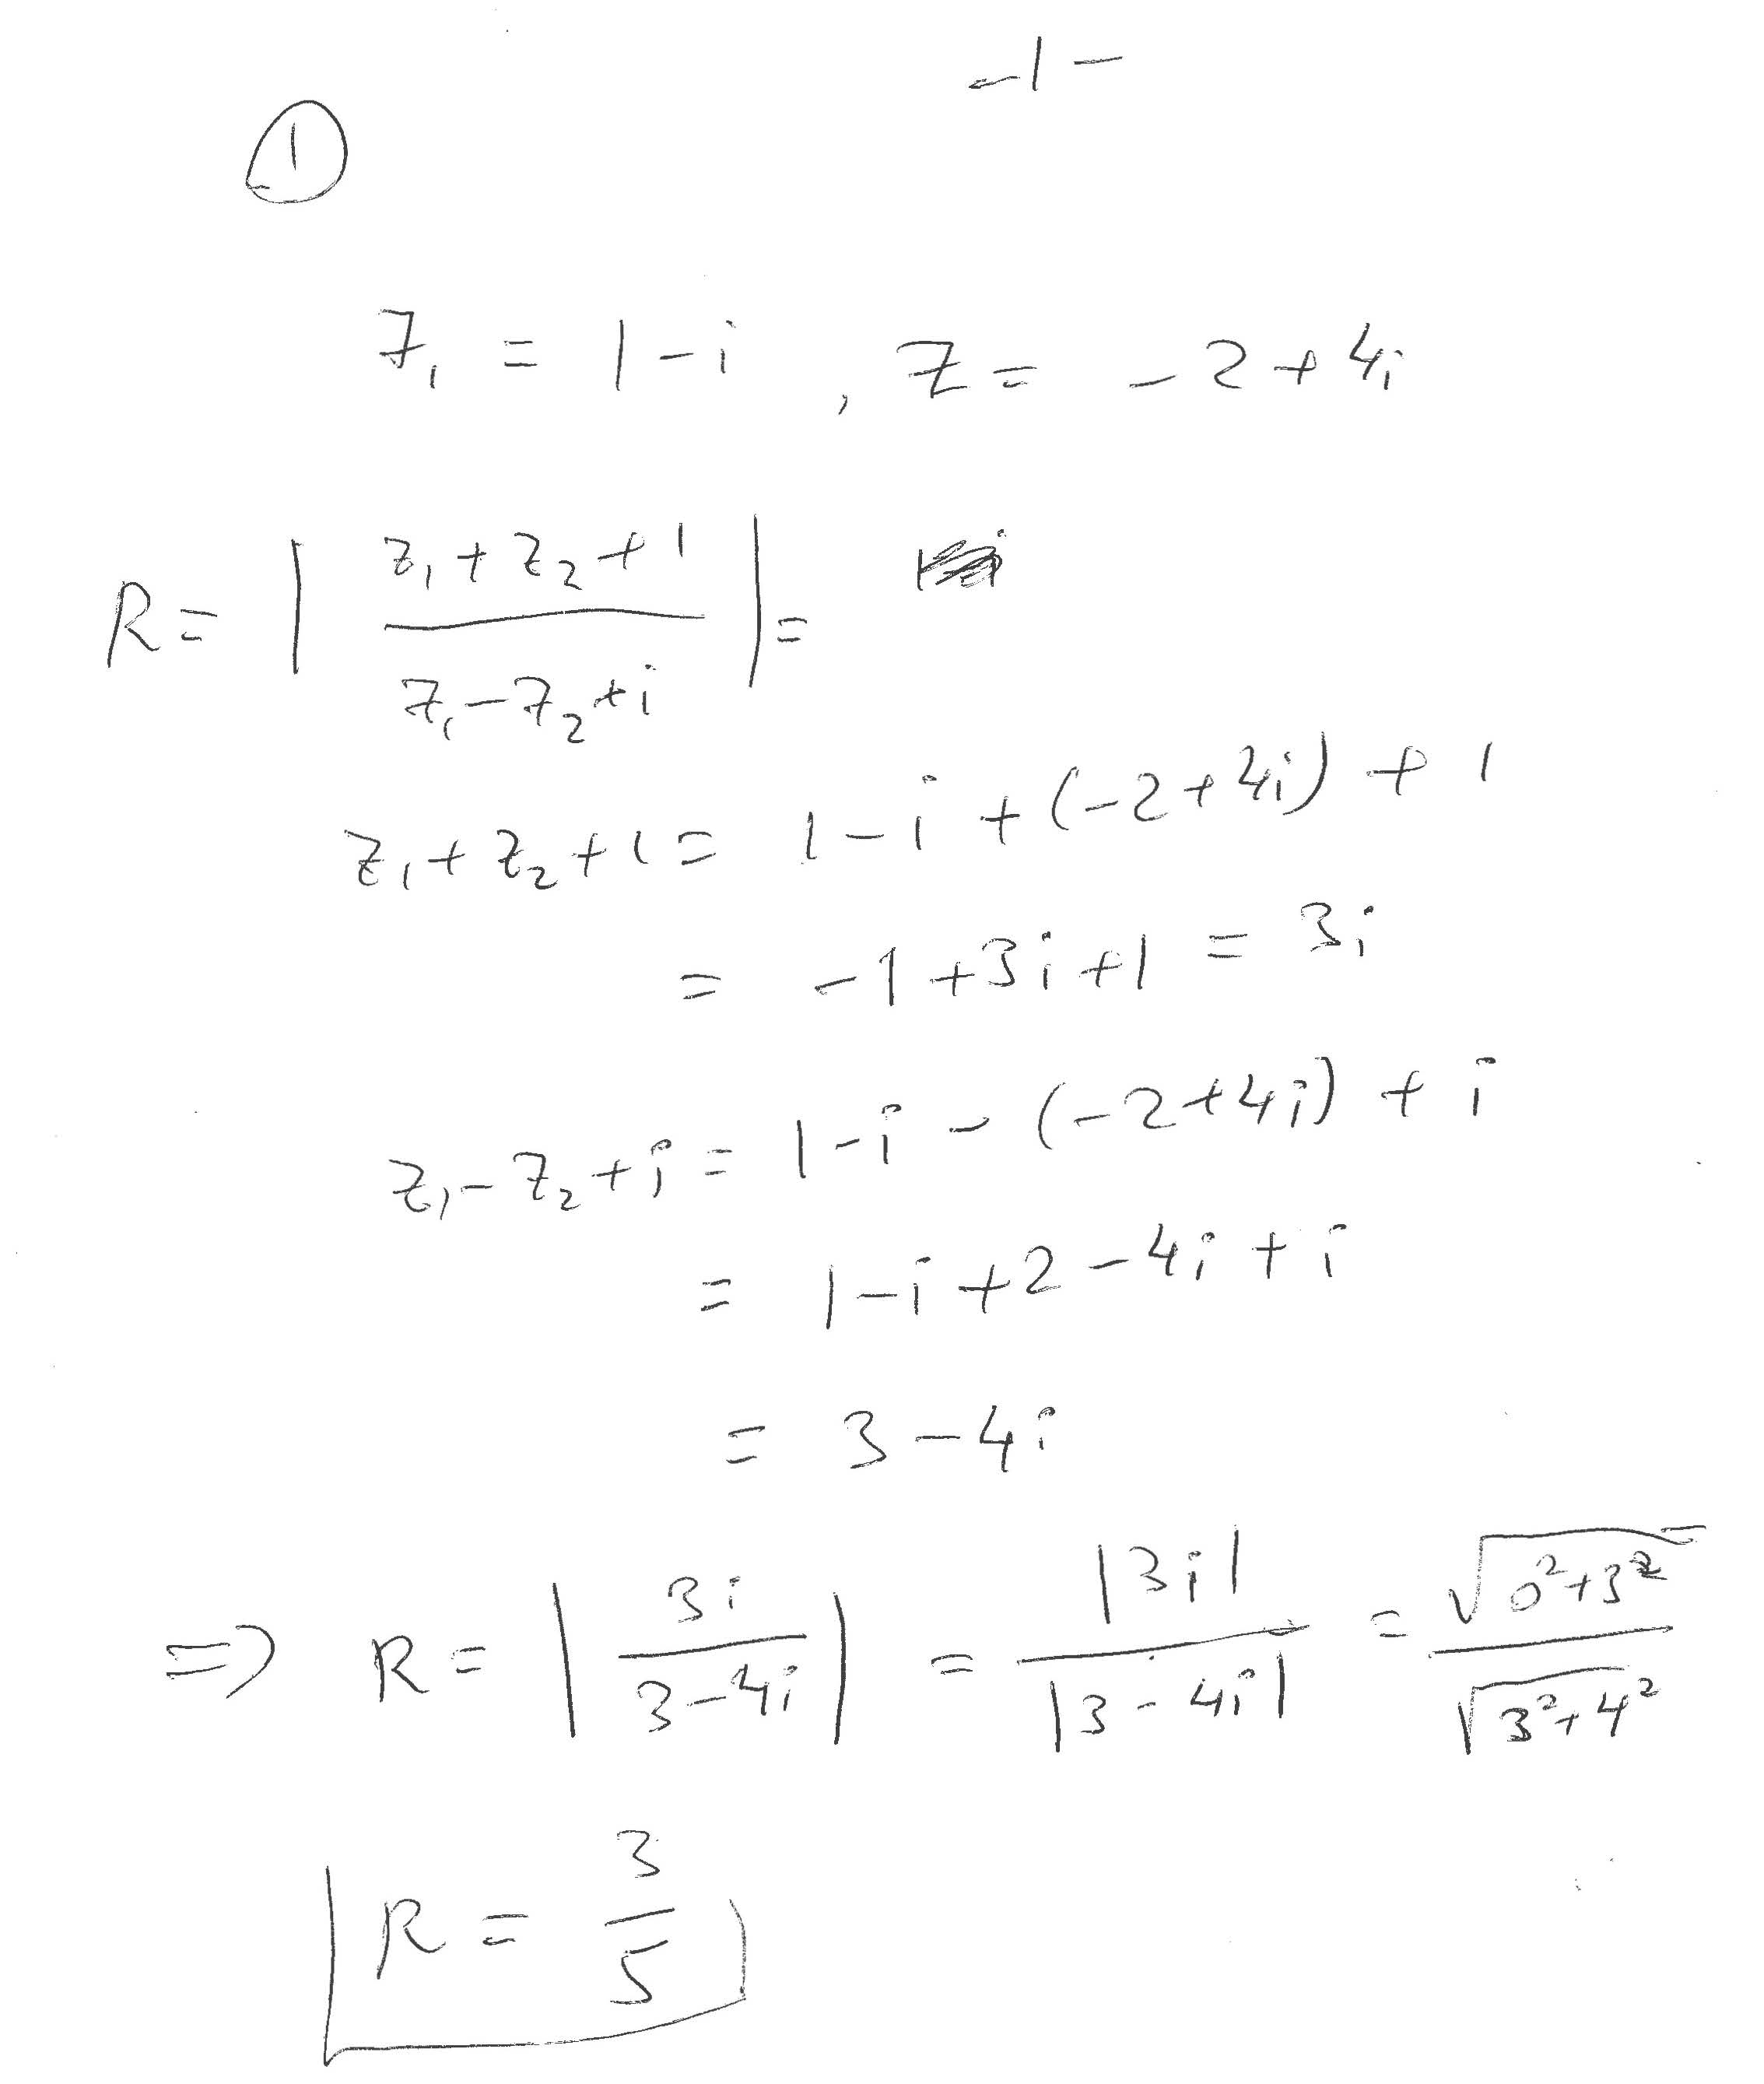 -1-
①
z₁ = 1-i , z = -2+4i
R = | (z₁+z₂+1)/(z₁-z₂+i) | =
z₁+z₂+1 = 1-i+(-2+4i)+1
= -1+3i+1 = 3i
z₁-z₂+i = 1-i-(-2+4i)+i
= 1-i+2-4i+i
= 3-4i
=> R = | 3i/(3-4i) | = |3i|/|3-4i| = √(0²+3²)/√(3²+4²) =
R = 3/5